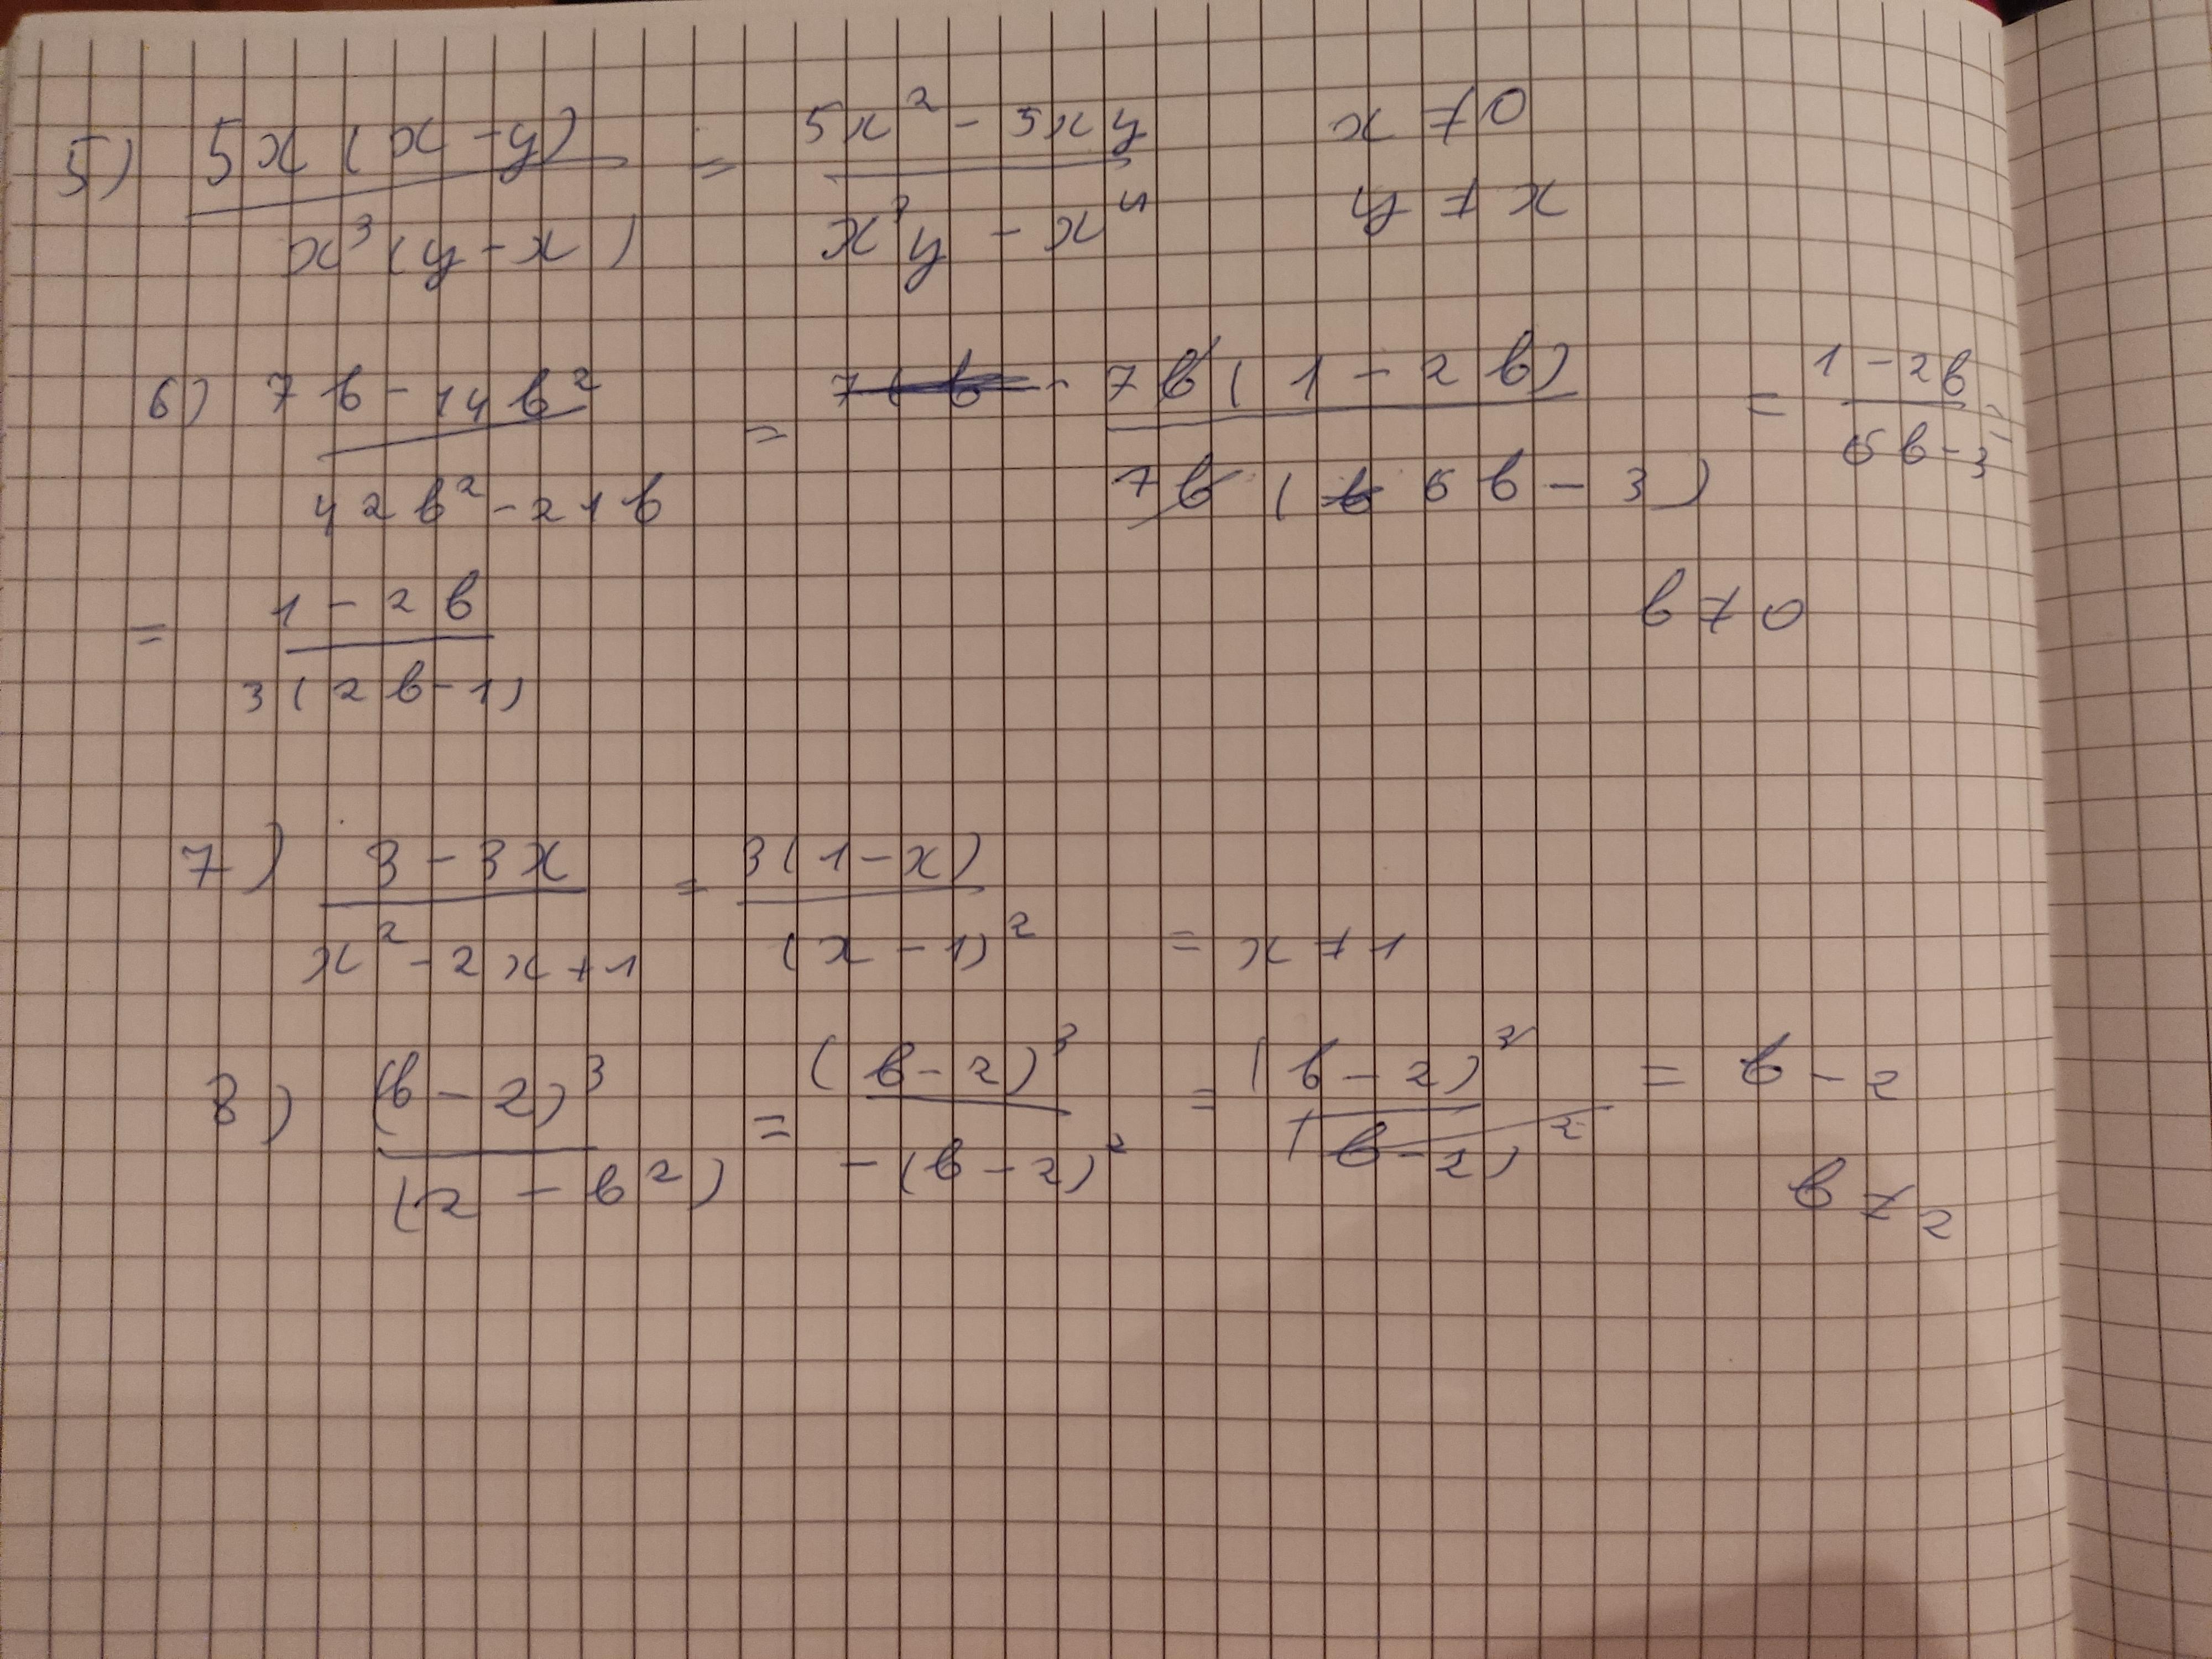 5) 5x(x-y) / x³(y-x) = 5x² - 5xy / x³y - x⁴ x ≠ 0
y ≠ x
6) 7b - 14b² / 42b² - 21b = 7b(1 - 2b) / 7b(6b - 3) = 1 - 2b / 6b - 3
= 1 - 2b / 3(2b - 1) b ≠ 0
7) 3 - 3x / x² - 2x + 1 = 3(1 - x) / (x - 1)² = x ≠ 1
8) (b - 2)³ / (2 - b²) = (b - 2)³ / -(b - 2)² = (b - 2)³ / (b - 2)² = b - 2
b ≠ 2